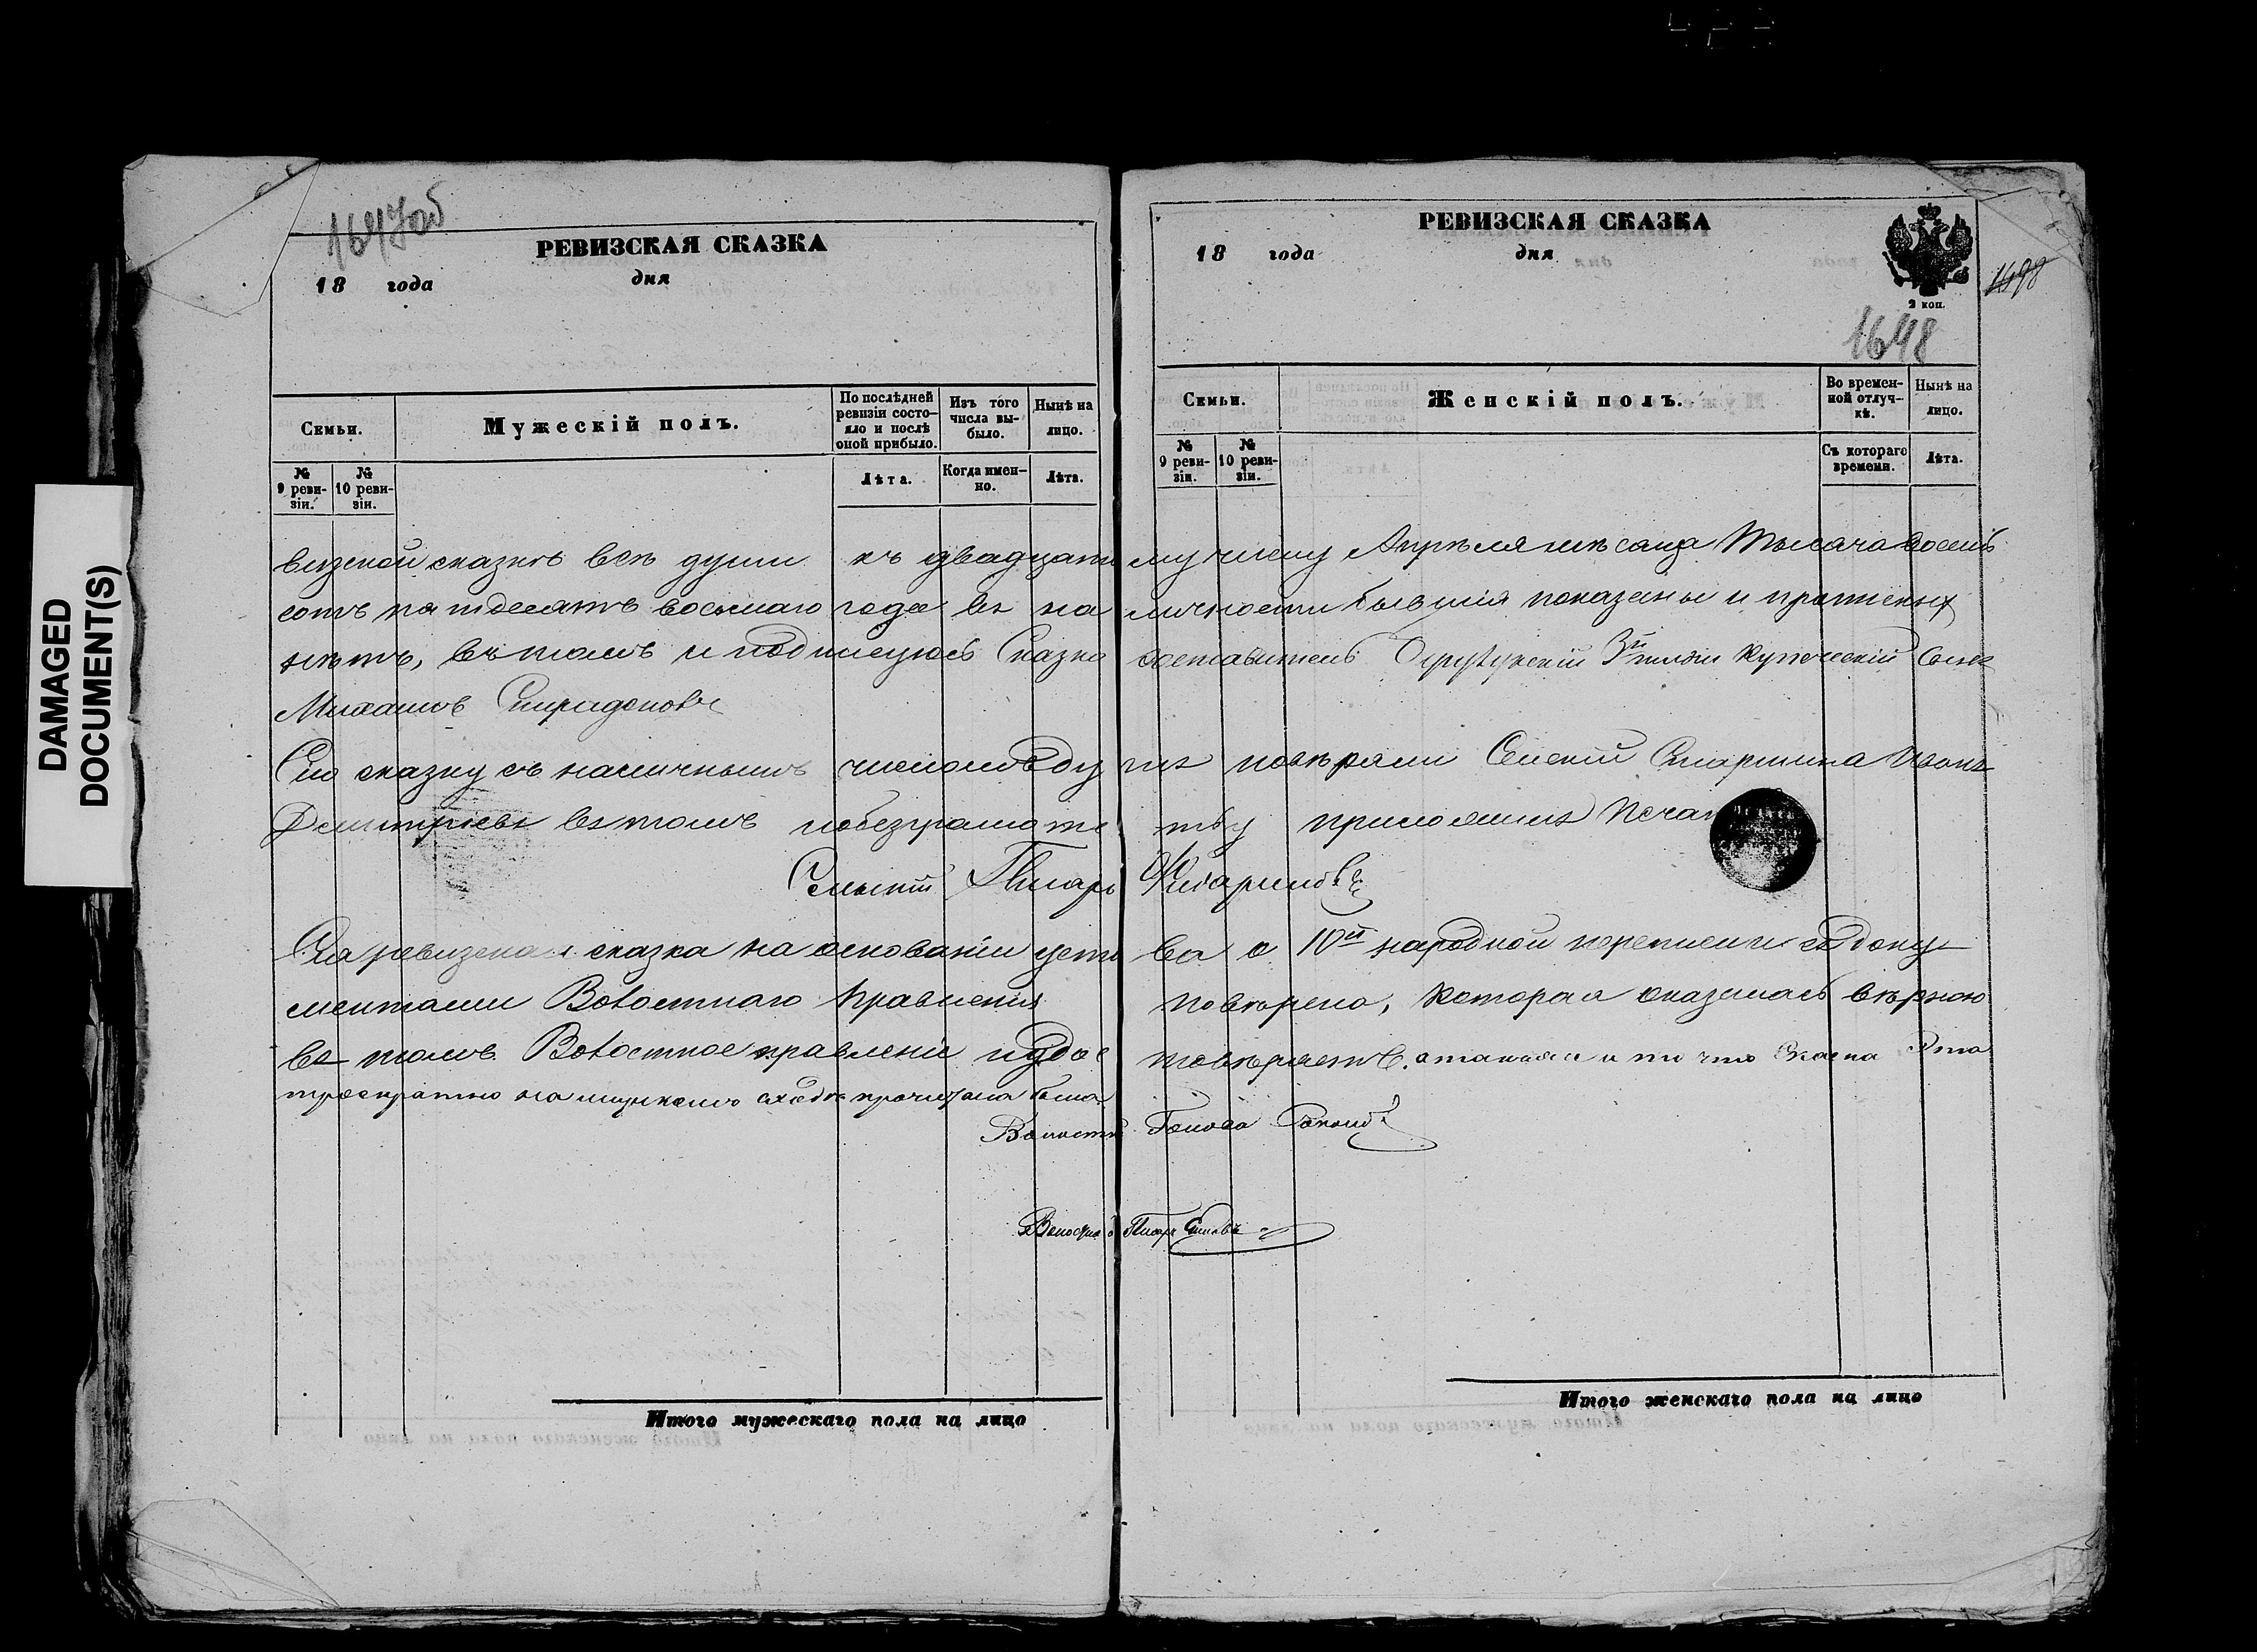 DAMAGED
DOCUMENT(S)
1647об
РЕВИЗСКАЯ СКАЗКА
18 года дня
Семьи.
Мужескій полъ.
По послѣдней ревизіи состояло и послѣ оной прибыло.
Изъ того числа выбыло.
Нынѣ на лицо.
№ 9 ревизіи.
№ 10 ревизіи.
Лѣта.
Когда именно.
Лѣта.
РЕВИЗСКАЯ СКАЗКА
18 года дня
2 коп.
1648
Семьи.
Женскій полъ.
Во временной отлучкѣ.
Нынѣ на лицо.
№ 9 ревизіи.
№ 10 ревизіи.
Съ котораго времени.
Лѣта.
визской сказкѣ всѣ души къ двадцатому числу Апрѣля мѣсяца Тысяча восемь
сотъ пятдесятъ восьмаго года въ наличности бывшія показаны и
нѣтъ, въ томъ и подписуюсь Сказко составитель 3й гильдіи Купеческій Сынъ
Михаилъ Спиридоновъ
Сію сказку съ наличнымъ числомъ душъ повѣряли Сельскій Старшина Иванъ
Дмитріевъ въ томъ побезграмотству приложилъ Печать
Сельскій Писарь
Сія ревизская сказка на основаніи устава о 10й народной переписи и съ документами Волостнаго Правленія повѣрена, которая оказалась вѣрною
въ томъ Волостное правленіе и удостовѣряетъ. а такъ же и то что Сказка Эта
троекратно на мірскомъ сходѣ прочитана была.
Волостной Голова
Волостной Писарь
Итого мужескаго пола на лицо
Итого женскаго пола на лицо